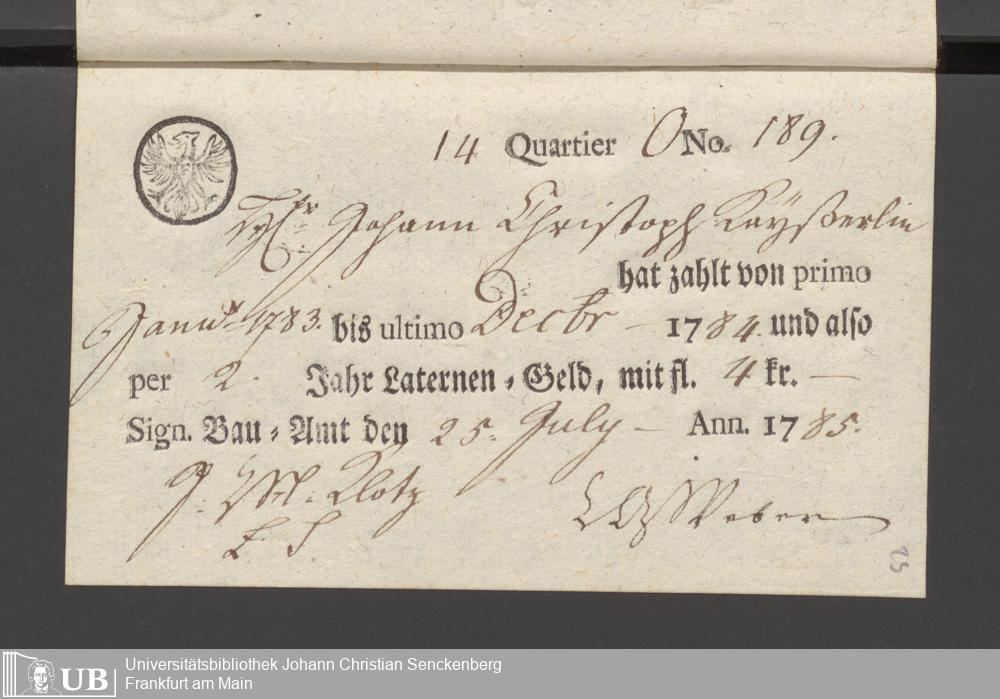 14 Quartier O No. 189.
Johann Christoph Kayßerlin
hat zahlt von primo
Januar 1783. bis ultimo Decbr – 1784. und also
per 2. Jahr Laternen-Geld, mit fl. 4 kr. —
Sign. Bau-Amt den 25. July – Ann. 1785.
J. M. Klotz
Weber
23
Universitätsbibliothek Johann Christian Senckenberg
UB Frankfurt am Main